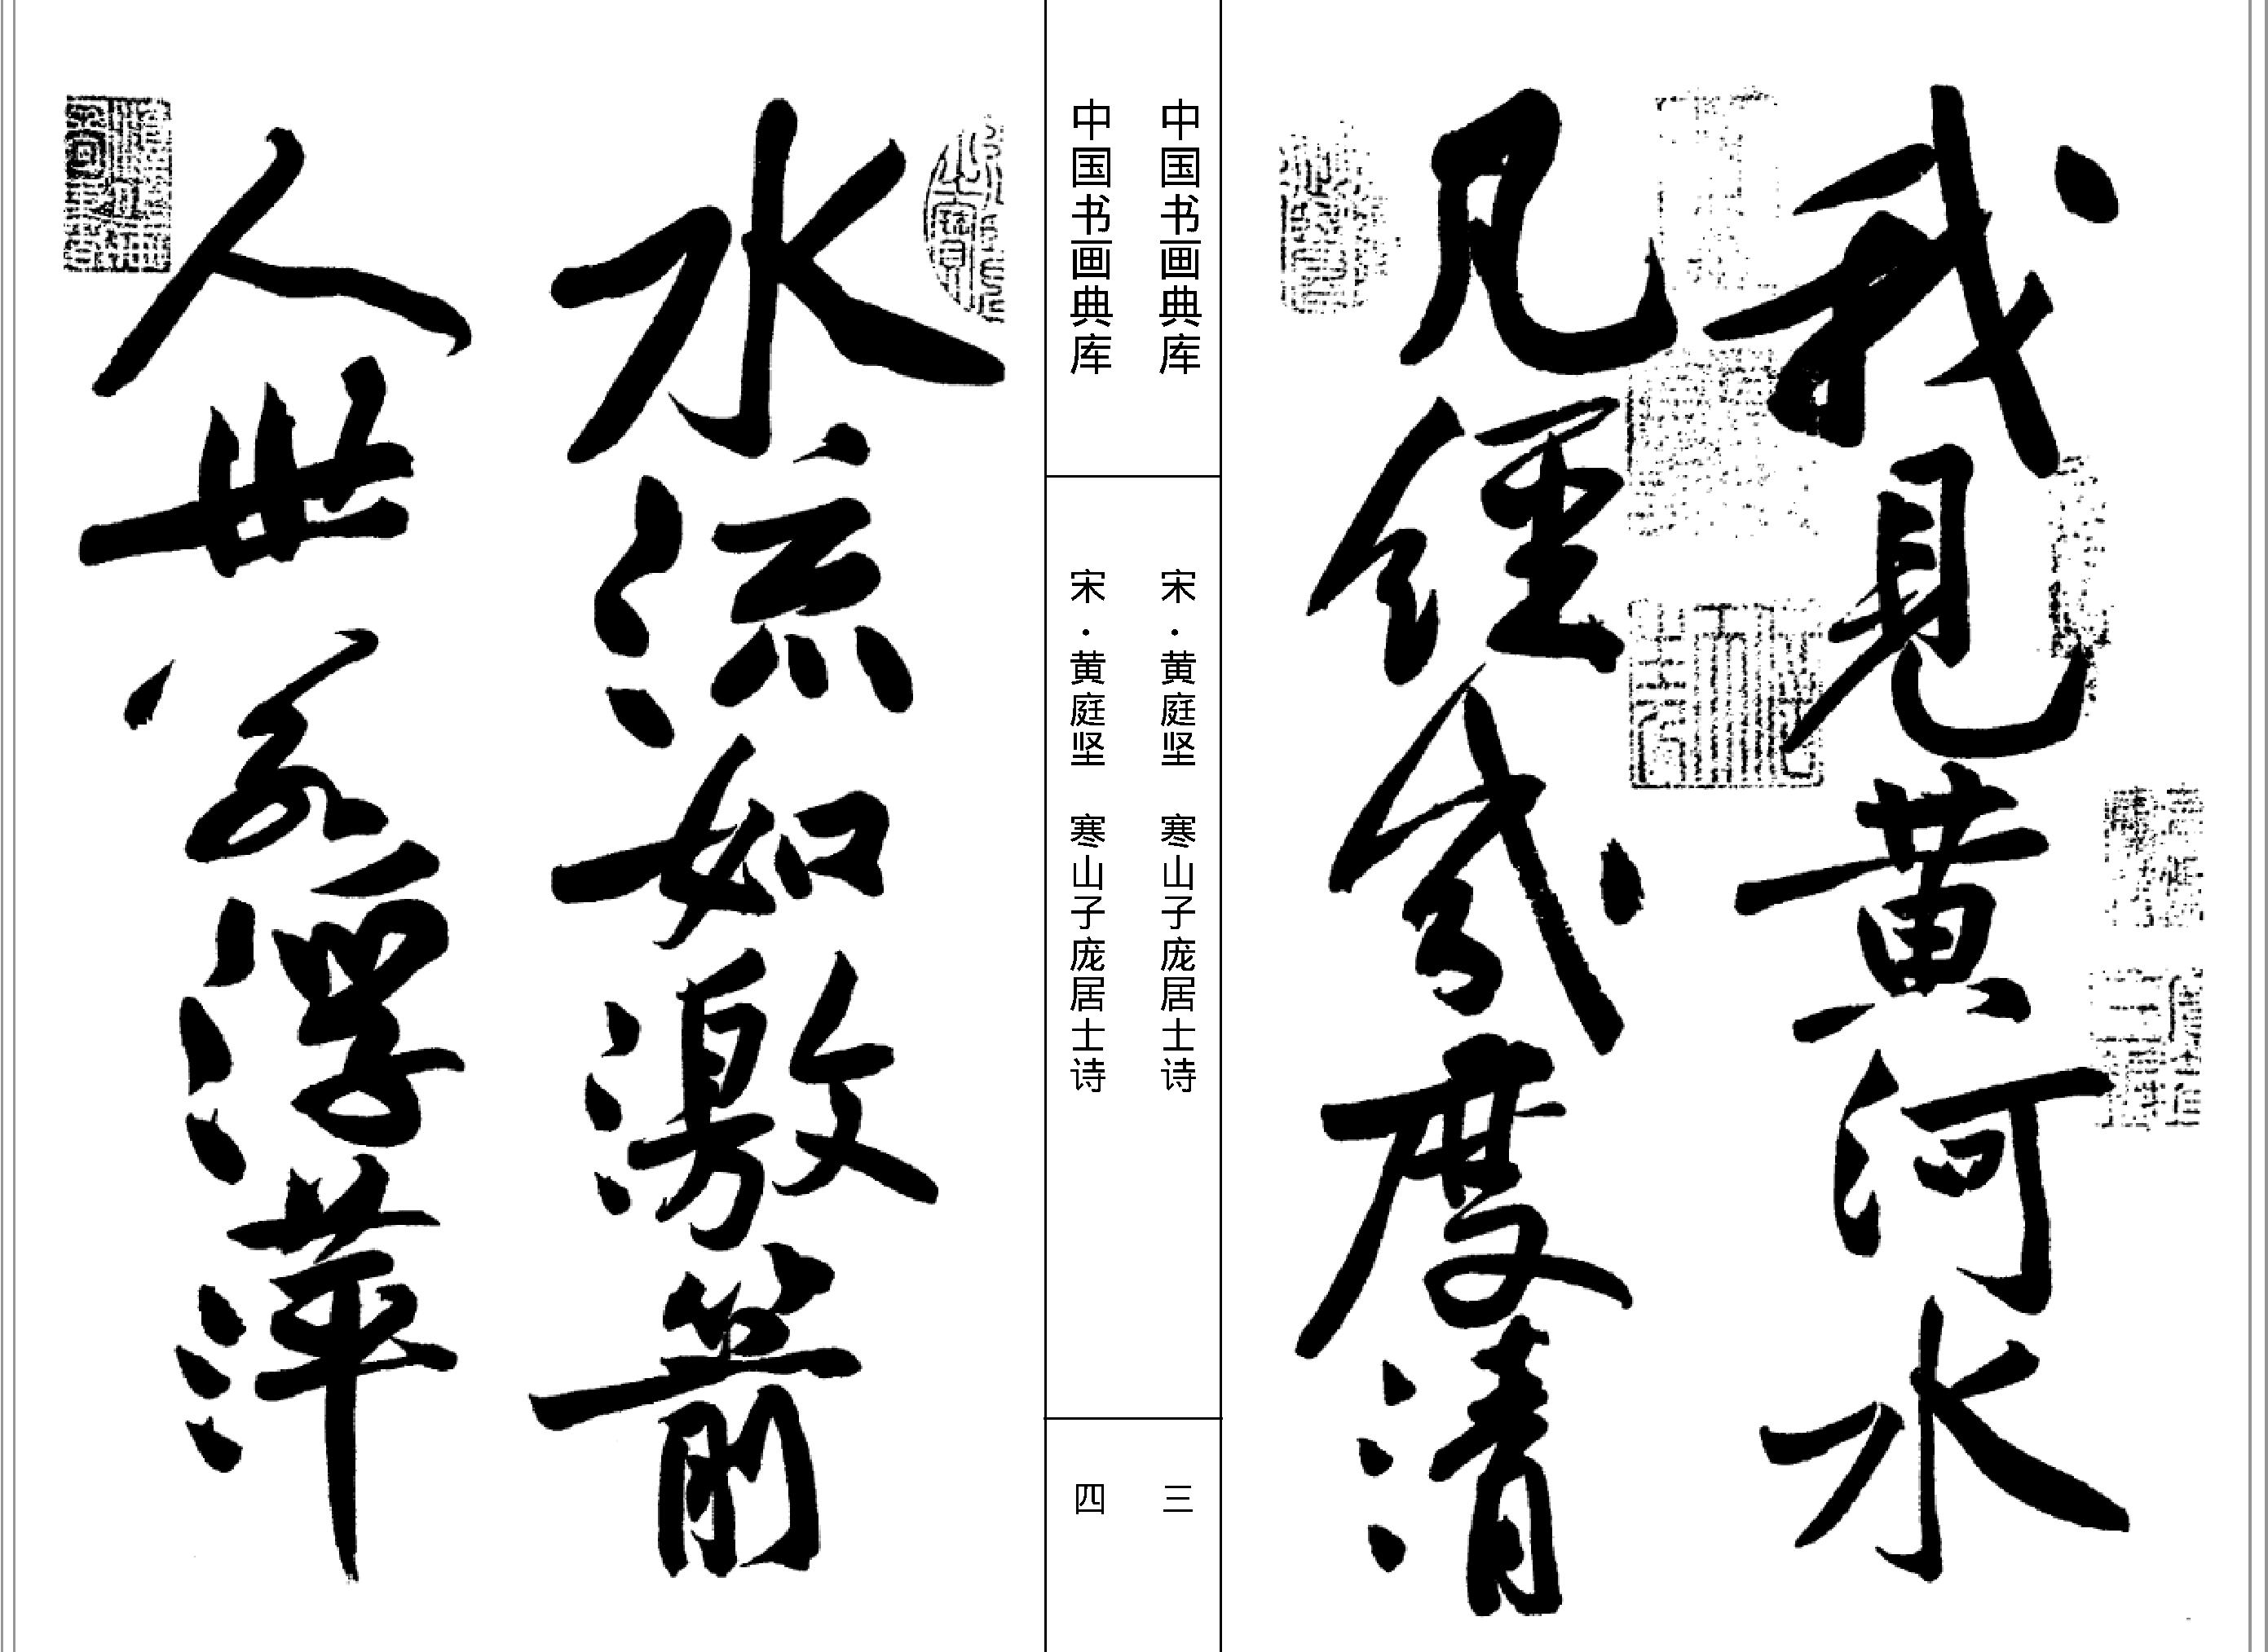 我見黄河水
凡經幾度清
中国书画典库
宋·黄庭坚 寒山子庞居士诗
三
中国书画典库
宋·黄庭坚 寒山子庞居士诗
四
水流如激箭
人世若浮萍